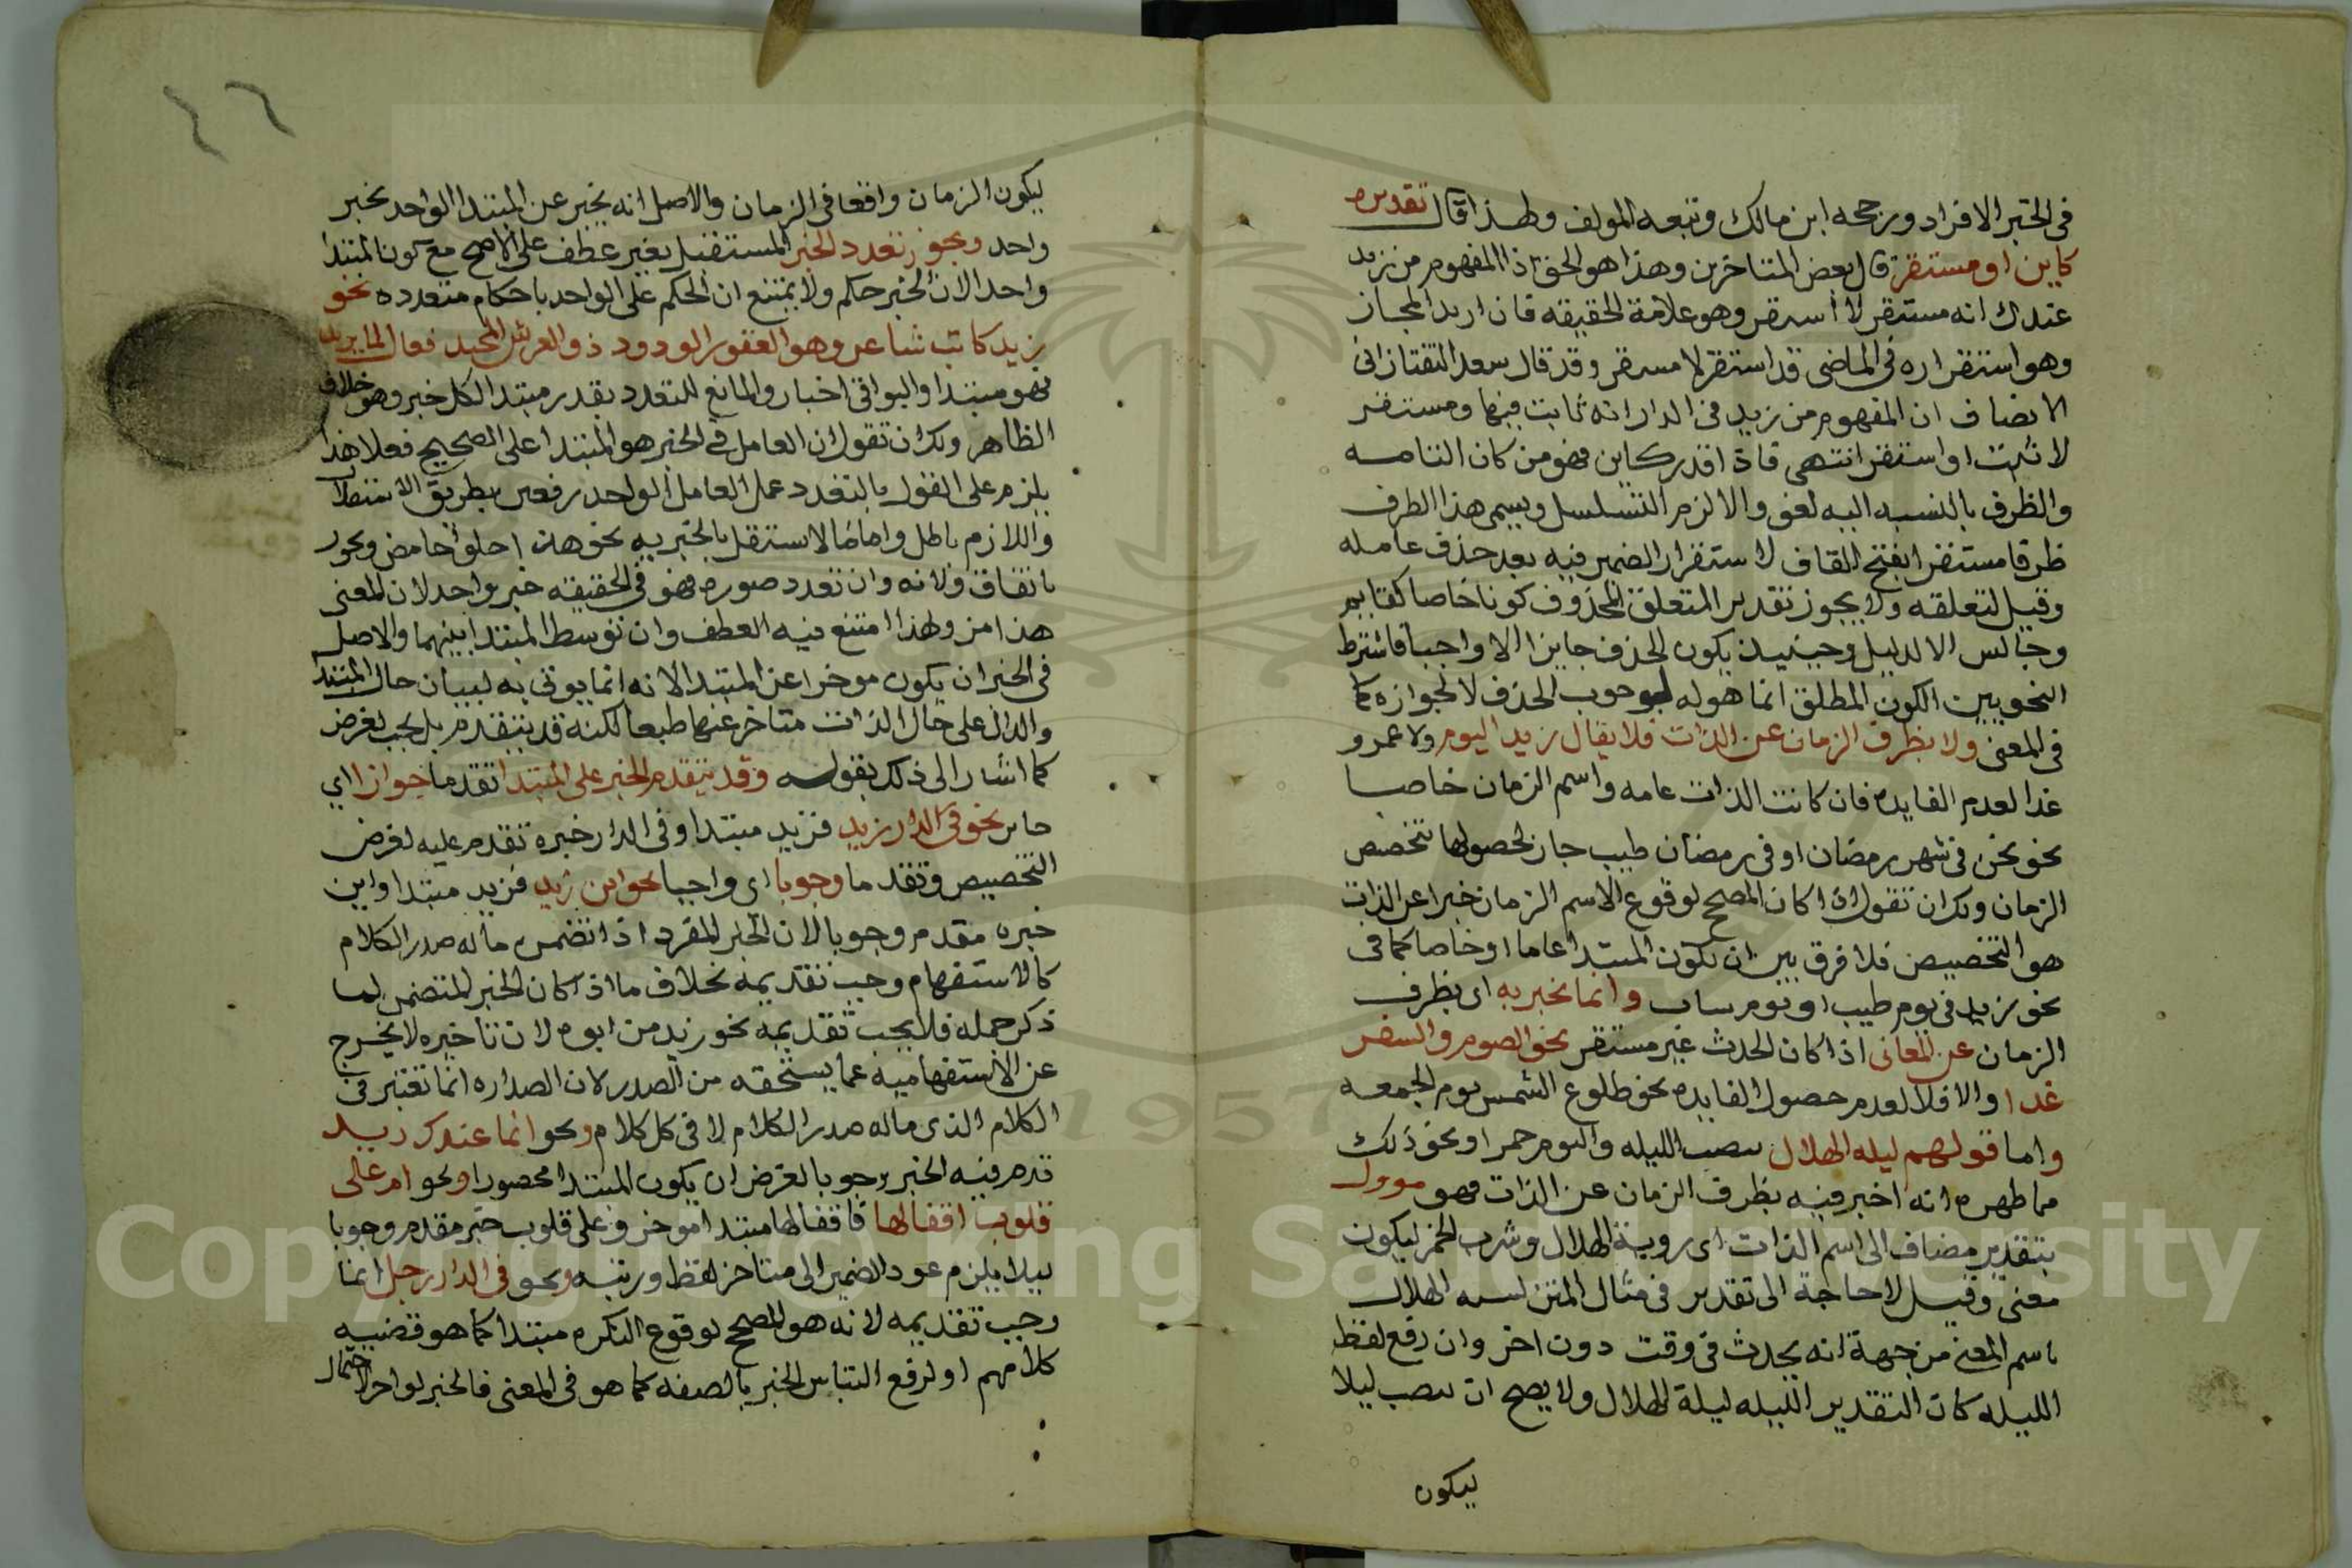 فى الخبر الافراد ورجحه ابن مالك وتبعه المولف ولهذا قال تقديره
كاين او مستقر قال بعض المتاخرين وهذا هو الحق اذ المفهوم من زيد
عندك انه مستقر لا استقر وهو علامة الحقيقه فان اريد المجاز
وهو استقراره فى الماضى قدر استقر لا مستقر وقد قال سعد التفتازانى
الانصاف ان المفهوم من زيد فى الدار انه ثابت فيها ومستقر
لا ثبت او استقر انتهى فاذا قدر كاين فهو من كان التامه
والظرف بالنسبه اليه لغو والا لزم التسلسل ويسمى هذا الظرف
ظرفا مستقرا بفتح القاف لاستقرار الضمير فيه بعد حذف عامله
وقيل لتعلقه ولا يجوز تقدير المتعلق المحذوف كونا خاصا كقايم
وجالس الا لدليل وحينيذ يكون الحذف جايزا لا واجبا فاشترط
النحويين الكون المطلق انما هو لوجوب الحذف لا لجوازه كما
فى المغنى ولا بظرف الزمان عن الذات فلا يقال زيد اليوم ولا عمرو
غدا لعدم الفايده فان كانت الذات عامه واسم الزمان خاصا
نحو نحن فى شهر رمضان او فى رمضان طيب جاز لحصولها بتخصص
الزمان ولك ان تقول اذا كان المصحح لوقوع الاسم الزمان خبرا عن الذات
هو التخصيص فلا فرق بين ان يكون المبتدا عاما او خاصا كما فى
نحو زيد فى يوم طيب او يوم سات وانما يخبر به اى بظرف
الزمان عن المعانى اذا كان الحدث غير مستقر نحو الصوم والسفر
غدا والا فلا لعدم حصول الفايده نحو طلوع الشمس يوم الجمعه
واما قولهم ليله الهلال بنصب الليله واليوم خمر او نحو ذلك
مما ظهره انه اخبر فيه بظرف الزمان عن الذات فهو موول
بتقدير مضاف الى اسم الذات اى روية الهلال وشرب الخمر ليكون
معنى وقيل لا حاجة الى تقدير فى مثال المتن لشبه الهلال
باسم المعنى من جهة انه يحدث فى وقت دون اخر وان رفع لفظ
الليله كان التقدير الليله ليلة الهلال ولا يصح ان ينصب ليلا
ليكون
٤٦
ليكون الزمان واقعا فى الزمان والاصل انه يخبر عن المبتدا الواحد بخبر
واحد ويجوز تعدد الخبر المستقل بغير عطف على الاصح مع كون المبتدا
واحدا لان الخبر حكم ولا يمتنع ان الحكم على الواحد باحكام متعدده نحو
زيد كاتب شاعر وهو الغفور الودود ذو العرش المجيد فعال لما يريد
فهو مبتدا والبواقى اخبار والمانع للتعدد يقدر مبتدا لكل خبر وهو خلاف
الظاهر ولك ان تقول ان العامل فى الخبر هو المبتدا على الصحيح فعلا هذا
يلزم على القول بالتعدد عمل العامل الواحد رفعين بطريق الاستقلال
واللازم باطل واما ما لا استقل بالخبريه نحو هذا حلو حامض ويجوز
باتفاق ولانه وان تعدد صوره فهو فى الحقيقه خبر واحد لان المعنى
هذا مز ولهذا امتنع فيه العطف وان توسط المبتدا بينهما والاصل
فى الخبر ان يكون موخرا عن المبتدا لانه انما يوتى به لبيان حال المبتدا
والدال على حال الذات متاخر عنها طبعا لكنه قد يتقدم بل يجب لغرض
كما اشار الى ذلك بقوله وقد يتقدم الخبر على المبتدا تقدما جوازا اى
جايز نحو فى الدار زيد فزيد مبتدا وفى الدار خبره تقدم عليه لغرض
التخصيص وتقدما وجوبا اى واجبا نحو اين زيد فزيد مبتدا واين
خبره مقدم وجوبا لان الخبر المفرد اذا تضمن ماله صدر الكلام
كالاستفهام وجب تقديمه بخلاف ما اذا كان الخبر المتضمن لما
ذكر جمله فلا يجب تقديمه نحو زيد من ابوه لان تاخيره لا يخرج
عن الاستفهاميه عما يستحقه من الصدر لان الصداره انما تعتبر فى
الكلام الذى ماله صدر الكلام لا فى كل كلام ونحو انما عندك زيد
قدم فيه الخبر وجوبا لغرض ان يكون المبتدا محصورا ونحو ام على
قلوب اقفالها فاقفالها مبتدا موخر وعلى قلوب خبر مقدم وجوبا
ليلا يلزم عود الضمير الى متاخر لفظا ورتبه ونحو فى الدار رجل انما
وجب تقديمه لانه هو المصحح لوقوع النكره مبتدا كما هو قضيه
كلامهم او لرفع التباس الخبر بالصفه كما هو فى المغنى فالخبر لو اخر لاحتمال
Copyright © King Saud University
1957